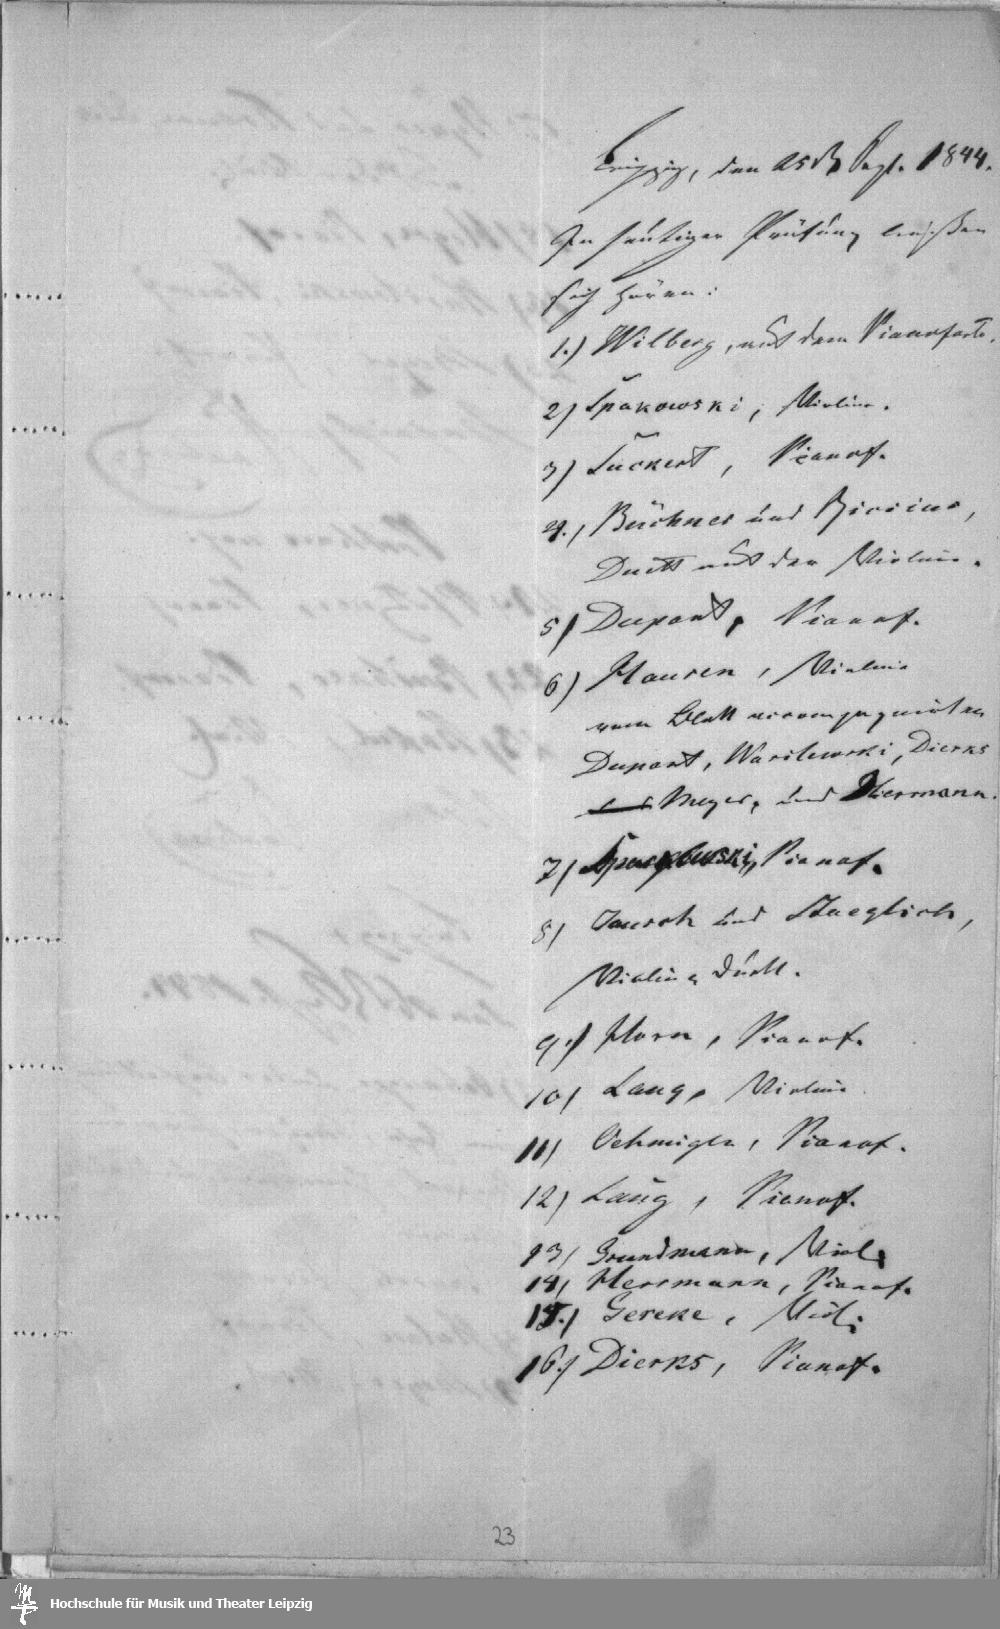 Leipzig, den 25 Sept. 1844.
In heutiger Prüfung ließen
sich hören:
1.) Wilberg, auf dem Pianoforte.
2) Spakowski, Violine.
3) Suckert, Pianof.
4.) Büchner und Riccius,
Duett auf der Violine.
5) Dupont, Pianof.
6) Hausen, Violine
vom Blatt accompagnirten
Dupont, Wasilewski, Dierks
Meyer, und Hermann.
7) Pianof.
8) Jausch und Staeglich,
Violin Duett.
9.) Horn, Pianof.
10) Lang, Violine
11) Oehmigen, Pianof.
12) Laug, Pianof.
13) Grundmann, Viol.
14) Herrmann, Pianof.
15.) Gereke, Viol.
16.) Dierks, Pianof.
23
Hochschule für Musik und Theater Leipzig